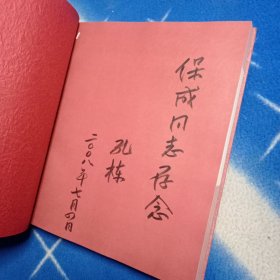 保成同志存念
孔栋
二〇〇八年七月四日